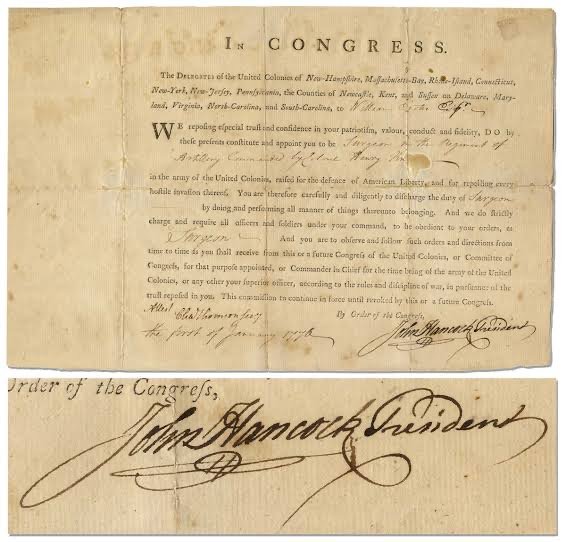 In CONGRESS.
The DELEGATES of the United Colonies of New-Hampſhire, Maſſachuſetts-Bay, Rhode-Iſland, Connecticut,
New-York, New-Jerſey, Pennſylvania, the Counties of Newcaſtle, Kent, and Suſſex on Delaware, Mary-
land, Virginia, North-Carolina, and South-Carolina, to William Esqr.
WE repoſing eſpecial truſt and confidence in your patriotiſm, valour, conduct and fidelity, DO by
theſe preſents conſtitute and appoint you to be Surgeon in the Regiment of
Artillery Commanded by Colonel Henry
in the army of the United Colonies, raiſed for the defence of American Liberty, and for repelling every
hoſtile invaſion thereof. You are therefore carefully and diligently to diſcharge the duty of Surgeon
by doing and performing all manner of things thereunto belonging. And we do ſtrictly
charge and require all officers and ſoldiers under your command, to be obedient to your orders, as
Surgeon And you are to obſerve and follow ſuch orders and directions from
time to time as you ſhall receive from this or a future Congreſs of the United Colonies, or Committee of
Congreſs, for that purpoſe appointed, or Commander in Chief for the time being of the army of the United
Colonies, or any other your ſuperior officer, according to the rules and diſcipline of war, in purſuance of the
truſt repoſed in you. This commiſſion to continue in force until revoked by this or a future Congreſs.
Attest Cha Thomson secy
By Order of the Congreſs,
the first of January 1776
John Hancock President
Order of the Congreſs,
John Hancock President